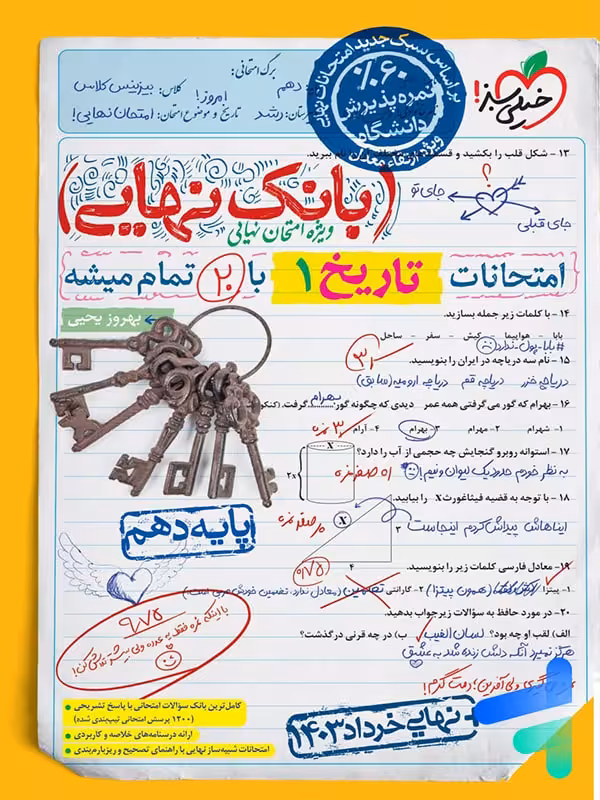 برگ امتحانی:
دهم
کلاس: بیزینس کلاس
امروز!
تاریخ و موضوع امتحان: امتحان نهایی!
براساس سبک جدید امتحانات نهایی
%۶۰
نمره پذیرش
دانشگاه
ویژه ارتقاء معدل
خیلی سبز!
۱۳- شکل قلب را بکشید و
ببرید.
؟
جای تو
جای قبلی
(بانک نهایی)
ویژه امتحان نهایی
امتحانات تاریخ ۱ با ۲۰ تمام میشه
بهروز یحیی
۱۴- با کلمات زیر جمله بسازید.
بابا - هواپیما - کیش - سفر - ساحل
#بابا-پول-ندارد
۱۵- نام سه دریاچه در ایران را بنویسید.
دریاچه خزر دریاچه قم دریاچه ارومیه (سابق)
۱۶- بهرام که گور می‌گرفتی همه عمر دیدی که چگونه گور بهرام گرفت.
۱- شهرام ۲- مهرام ۳- بهرام ۴- آرام
۱۷- استوانه روبرو گنجایش چه حجمی از آب را دارد؟
x
2x
به نظر خودم حدود یک لیوان و نیم!
۱۸- با توجه به قضیه فیثاغورث X را بیابید.
X
۳
۴
ایناهاش پیداش کردم اینجاست
پایه دهم
۰/۷۵
۱۹- معادل فارسی کلمات زیر را بنویسید.
۱- پیتزا (همون پیتزا) ۲- گارانتی تضمین (معادل ندارد، تضمین خودش عربی است)
۲۰- در مورد حافظ به سؤالات زیر جواب بدهید.
الف) لقب او چه بود؟ لسان الغیب ب) در چه قرنی درگذشت؟
هرگز نمیرد آنکه دلش زنده شد به عشق
۹/۷۵
ولی آفرین! دمت گرم!
کامل‌ترین بانک سؤالات امتحانی با پاسخ تشریحی
(۱۲۰۰ پرسش امتحانی تیپ‌بندی شده)
ارائه درسنامه‌های خلاصه و کاربردی
امتحانات شبیه‌ساز نهایی با راهنمای تصحیح و ریزبارم‌بندی
+ نهایی خرداد ۱۴۰۳